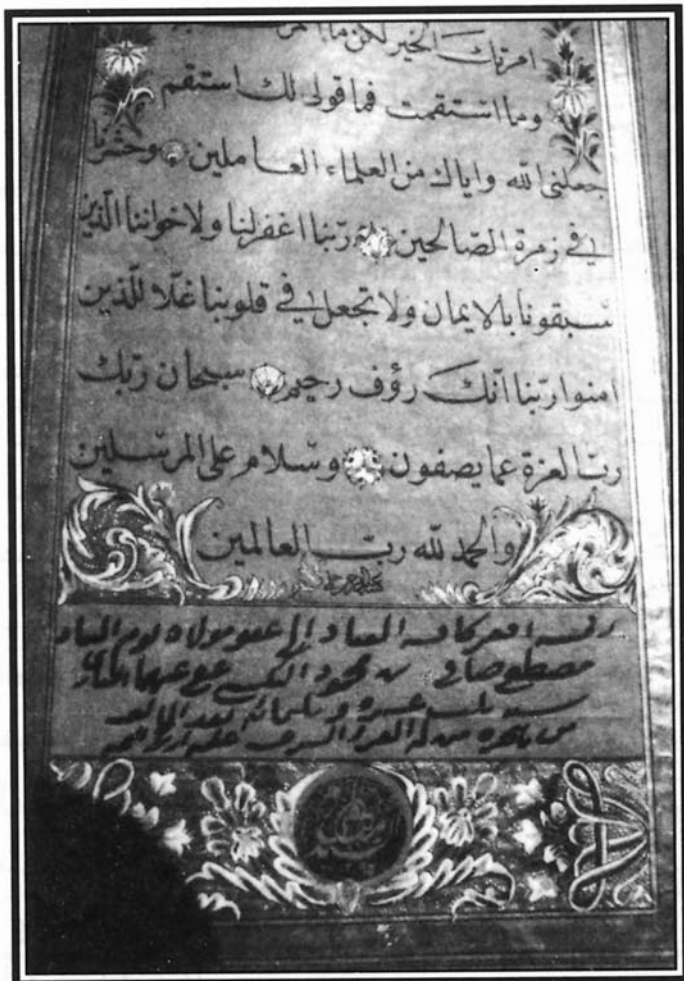 امرتك الخير لكن ما
وما استقمت فما قولي لك استقم
جعلني الله واياك من العلماء العاملين وحشرنا
في زمرة الصالحين ربّنا اغفر لنا ولاخواننا الّذين
سبقونا بالايمان ولا تجعل في قلوبنا غلّا للّذين
امنوا ربّنا انّك رؤف رحيم سبحان ربّك
ربّ العزة عما يصفون وسلام على المرسلين
والحمد لله ربّ العالمين
كافه العباد الى عفو مولاه يوم
مصطفى صافى بن محمود عفى عنهما
سنه عشره وثلثمائه بعد الالف
من هجره من له العز والشرف